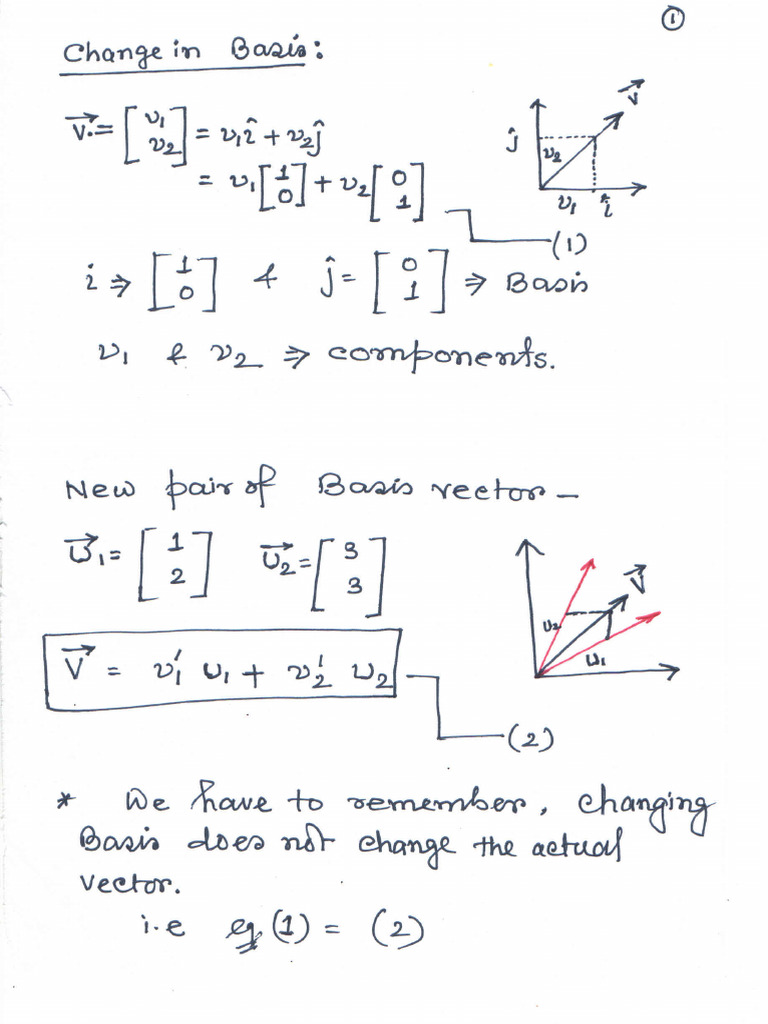 ①
Change in Basis:
$\vec{V} = \begin{bmatrix} v_1 \\ v_2 \end{bmatrix} = v_1 \hat{i} + v_2 \hat{j}$
$= v_1 \begin{bmatrix} 1 \\ 0 \end{bmatrix} + v_2 \begin{bmatrix} 0 \\ 1 \end{bmatrix}$ —(1)
$\hat{j}$ $v_2$ $\vec{V}$
$v_1$ $\hat{i}$
$i \Rightarrow \begin{bmatrix} 1 \\ 0 \end{bmatrix}$ & $\hat{j} = \begin{bmatrix} 0 \\ 1 \end{bmatrix} \Rightarrow$ Basis
$v_1$ & $v_2 \Rightarrow$ components.
New pair of Basis vector –
$\vec{u}_1 = \begin{bmatrix} 1 \\ 2 \end{bmatrix}$ $\vec{u}_2 = \begin{bmatrix} 3 \\ 3 \end{bmatrix}$
$u_2$ $\vec{V}$
$u_1$
$\vec{V} = v_1' u_1 + v_2' u_2$ —(2)
* We have to remember, changing
Basis does not change the actual
vector.
i.e eq (1) = (2)